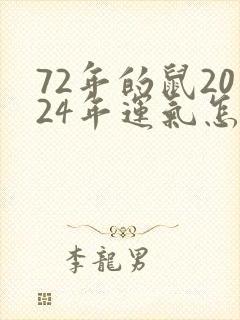 72年的鼠20
24年運氣怎
李龍男